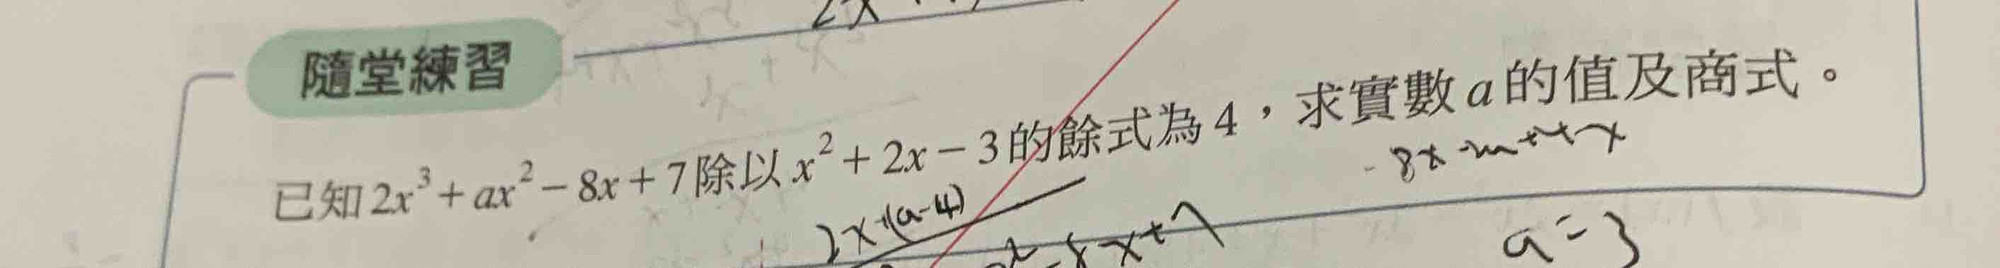 隨堂練習
已知 2x³ + ax² − 8x + 7 除以 x² + 2x − 3 的餘式為 4，求實數 a 的值及商式。
2x+(a-4)
-8x+7
a=3